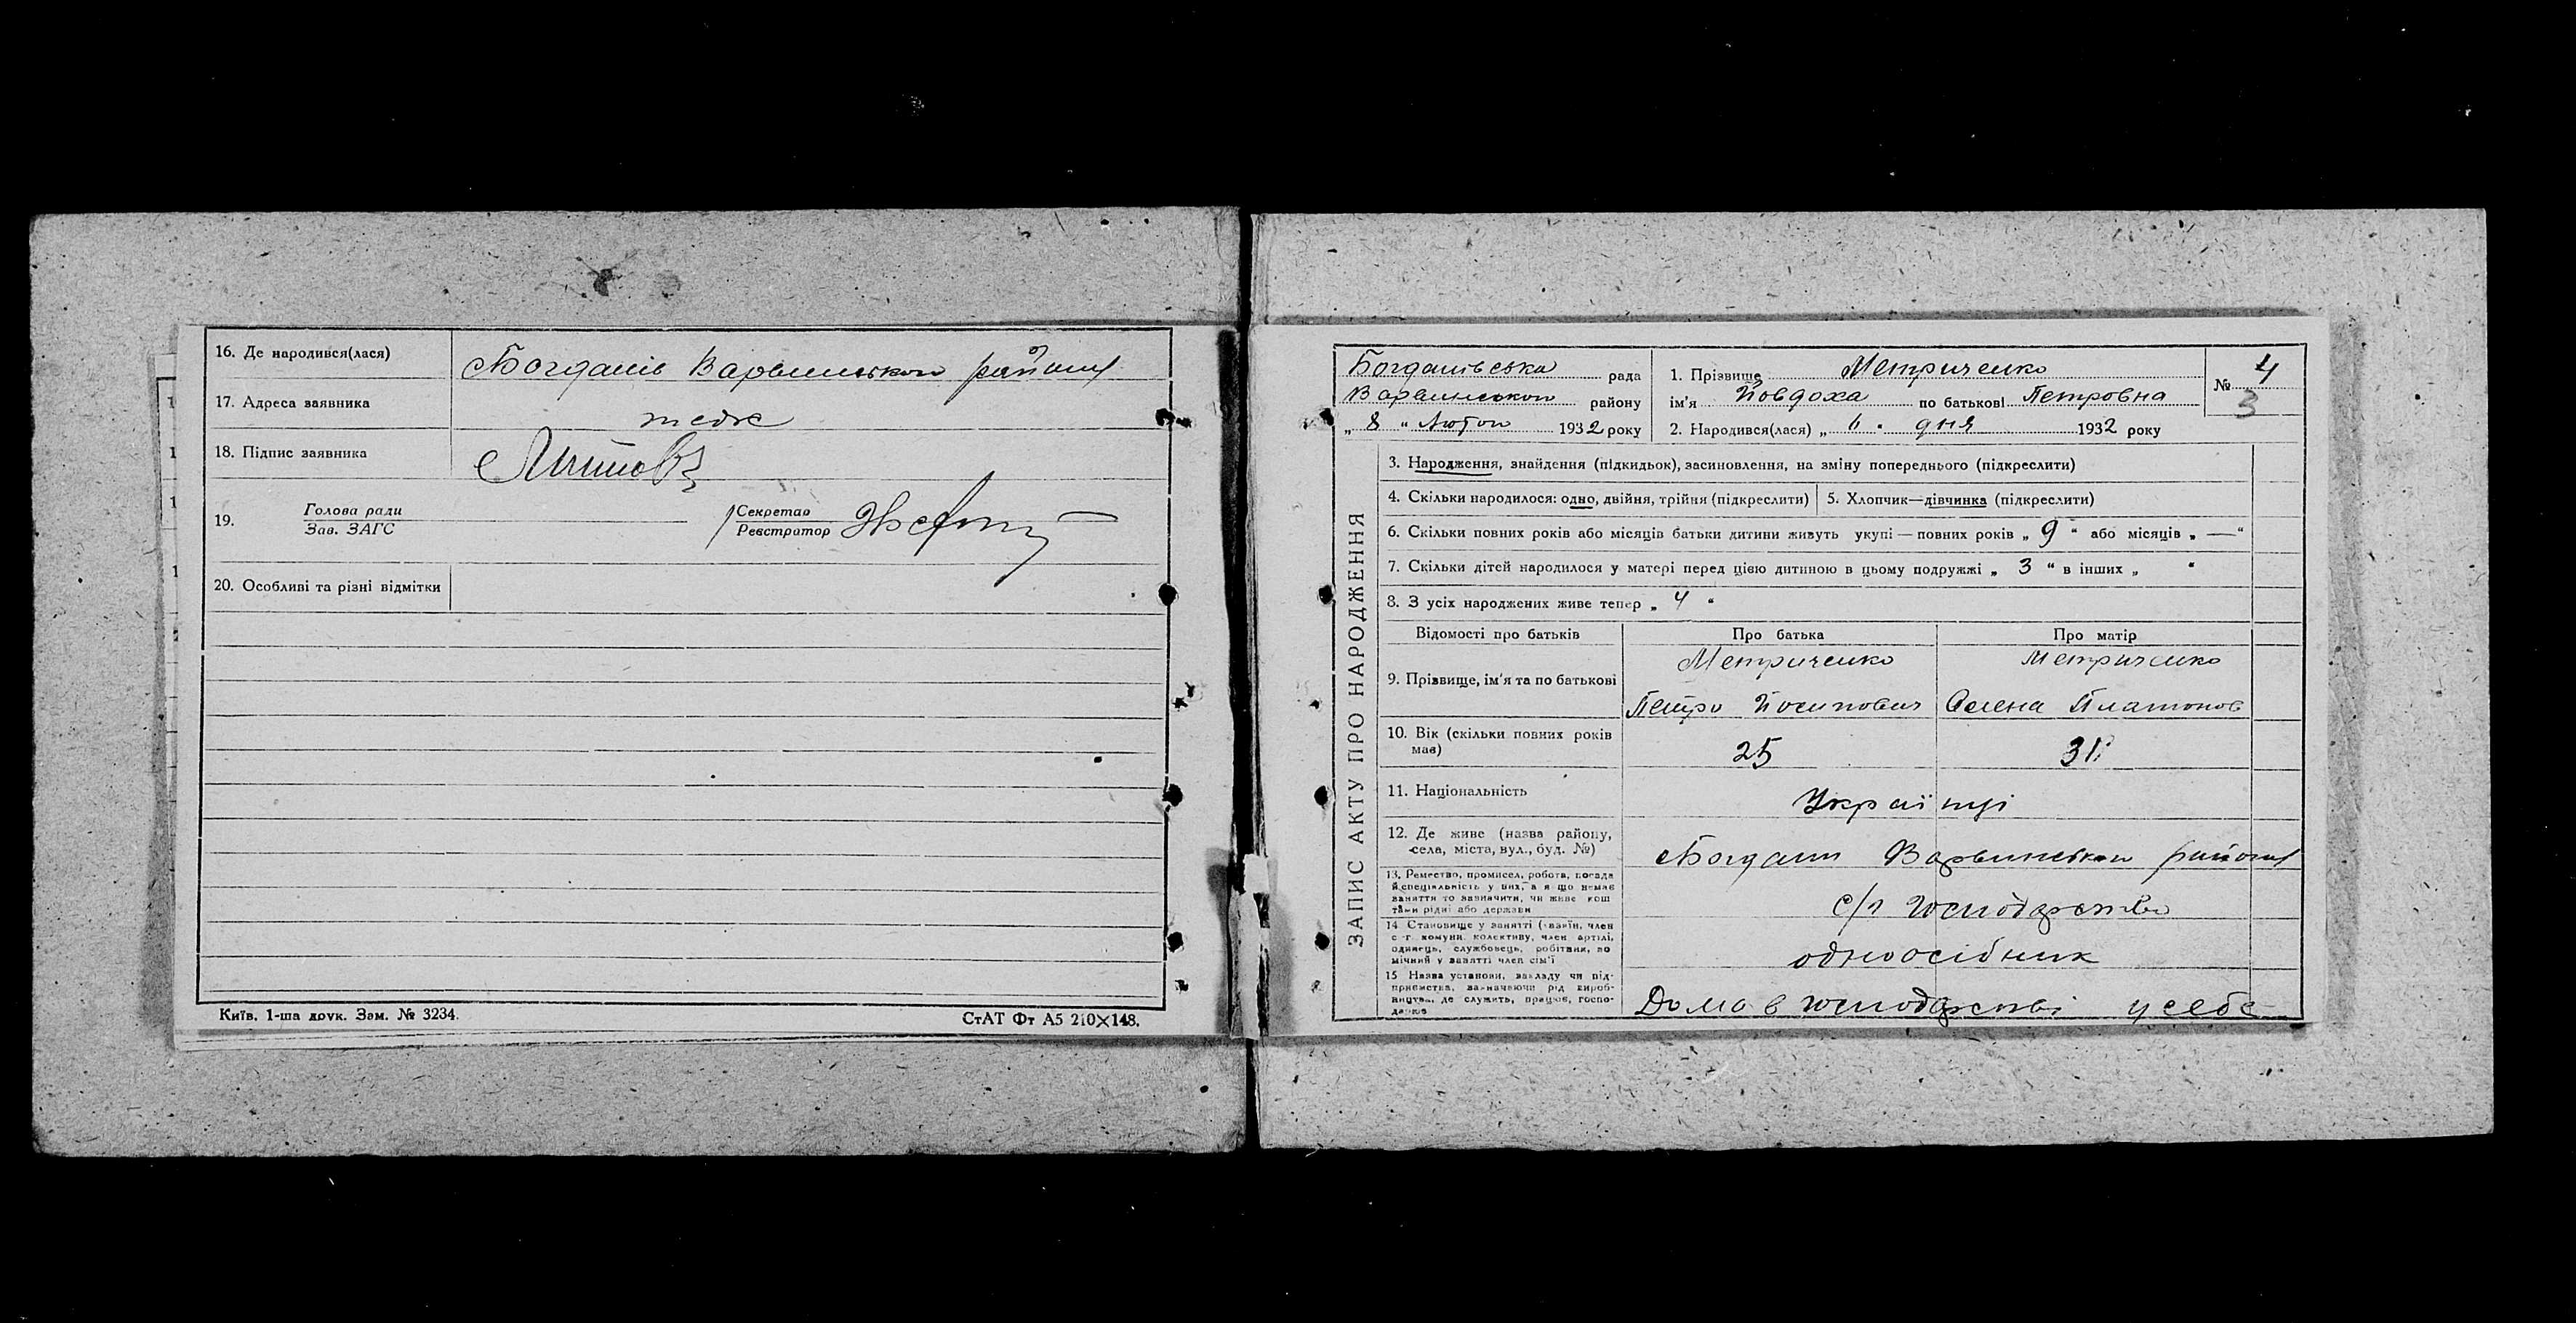 16. Де народився(лася) Богданів Варвинського району
17. Адреса заявника теж
18. Підпис заявника
19. Голова ради
Зав. ЗАГС
Секретар
Реєстратор
20. Особливі та різні відмітки
Київ. 1-ша друк. Зам. № 3234.
СтАТ Фт А5 210×148.
ЗАПИС АКТУ ПРО НАРОДЖЕННЯ
Богданівська рада
Варвинського району
„ 8 " Лютого 1932 року
1. Прізвище Метриченко
ім'я Йовдоха по батькові Петровна
2. Народився(лася) „ 6 " дня 1932 року
№ 4
3
3. Народження, знайдення (підкидьок), засиновлення, на зміну попереднього (підкреслити)
4. Скільки народилося: одно, двійня, трійня (підкреслити)
5. Хлопчик—дівчинка (підкреслити)
6. Скільки повних років або місяців батьки дитини живуть укупі — повних років „ 9 " або місяців „ — "
7. Скільки дітей народилося у матері перед цією дитиною в цьому подружжі „ 3 " в інших „ "
8. З усіх народжених живе тепер „ 4 "
Відомості про батьків Про батька Про матір
9. Прізвище, ім'я та по батькові
Метриченко Метриченко
Петро Йосипович Олена Платонов
10. Вік (скільки повних років має) 25 31
11. Національність Українці
12. Де живе (назва району, села, міста, вул., буд. №) Богдани Варвинського району
13. Ремество, промисел, робота, посада й спеціяльність у них, а якщо немає заняття то зазначити, чи живе коштами рідні або держави
с/г господарство
14 Становище у занятті (хазяїн, член с.-г. комуни, колективу, член артілі, одинець, службовець, робітник, помічний у занятті член сім'ї
одноосібник
15 Назва установи, закладу чи підприємства, зазначаючи рід виробництва, де служить, працює, господарює
Дома в господарстві у себе